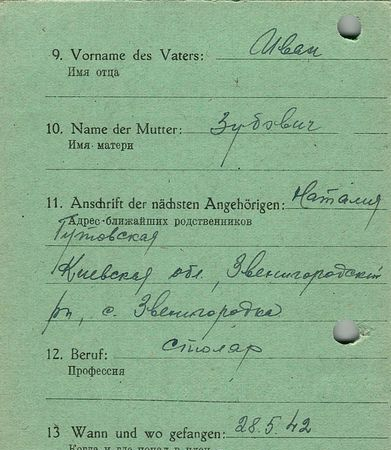 9. Vorname des Vaters: Иван
Имя отца
10. Name der Mutter: Зубович
Имя матери
11. Anschrift der nächsten Angehörigen: Наталия
Адрес ближайших родственников
Гутовская
Киевская обл, Звенигородский
рн, с. Звенигородка
12. Beruf: столяр
Профессия
13 Wann und wo gefangen: 28.5.42
Когда и где попал в плен